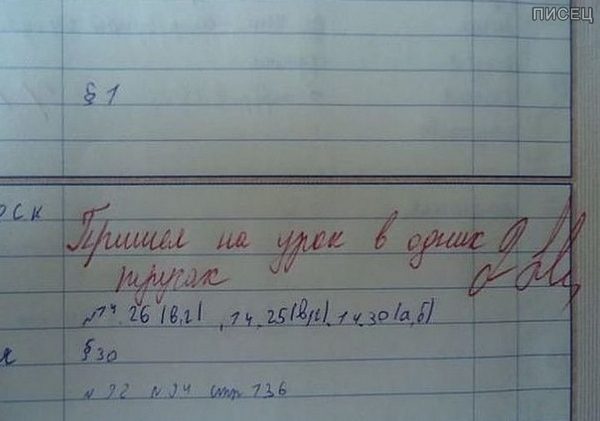 ПИСЕЦ
§ 1
рск
Пришел на урок в одних 2
трусах
№14.26(в,г), 14.25(в,г), 14.30(а,б)
§30
№92 №94 стр 136